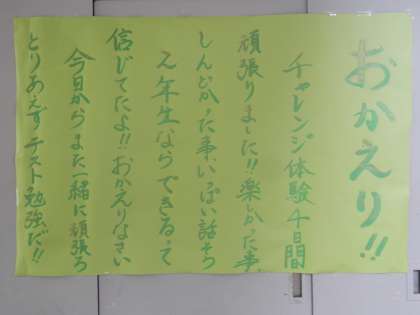 おかえり!!
チャレンジ体験十日間
頑張りました!!楽しかった事、
しんどかった事、いっぱい話そう
２年生ならできるって
信じてたよ!!おかえりなさい
今日からまた一緒に頑張ろ
とりあえずテスト勉強だ!!